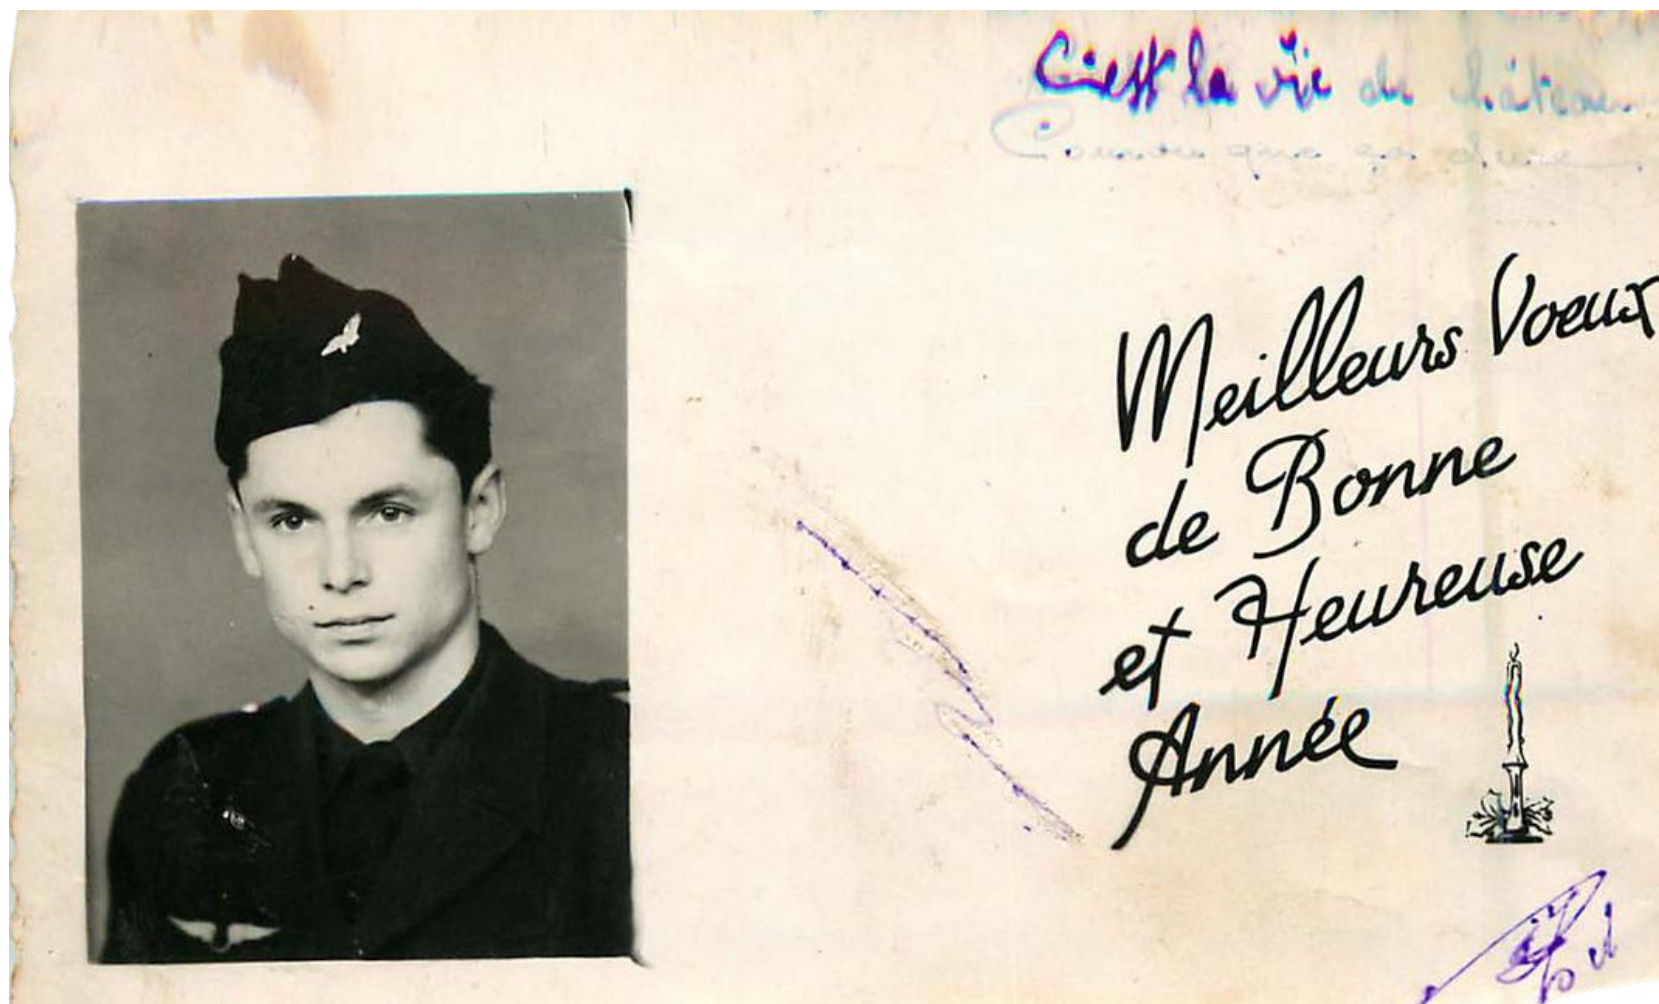 C'est la vie de château
Pourvu que ça dure
Meilleurs Voeux
de Bonne
et Heureuse
Année